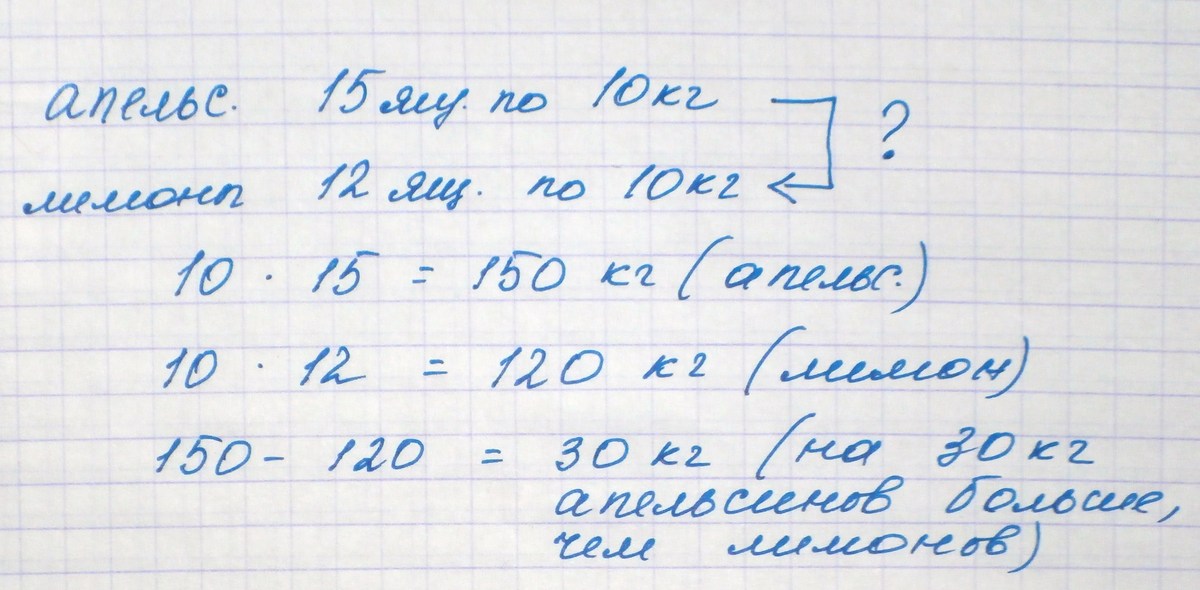 апельс. 15 ящ. по 10 кг
?
лимоны 12 ящ. по 10 кг
10 · 15 = 150 кг (апельс.)
10 · 12 = 120 кг (лимон)
150 - 120 = 30 кг (на 30 кг
апельсинов больше,
чем лимонов)